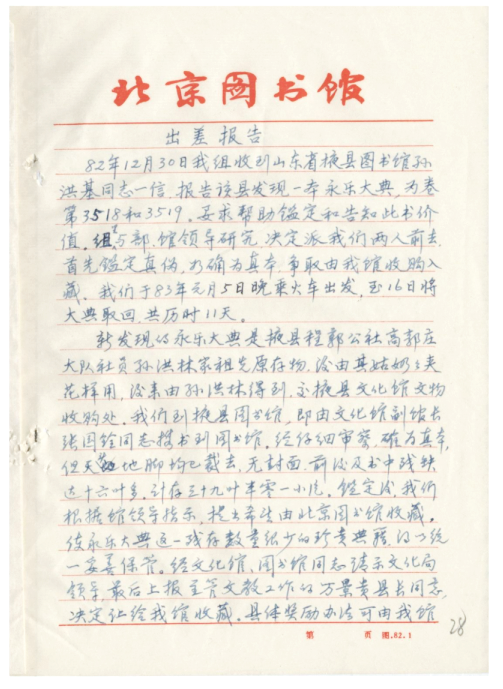 北京图书馆
出差报告
82年12月30日我组收到山东省掖县图书馆孙
洪基同志一信，报告该县发现一本永乐大典，为卷
第3518和3519。要求帮助鉴定和告知此书价
值。组与部、馆领导研究，决定派我们两人前去，
首先鉴定真伪，如确为真本，争取由我馆收购入
藏。我们于83年元月5日晚乘火车出发，至16日将
大典取回，共历时11天。
新发现的永乐大典是掖县程郭公社高郭庄
大队社员孙洪林家祖先原存物，后由其姑奶奶夹
花样用，后来由孙洪林得到，交掖县文化馆文物
收购处。我们到掖县图书馆，即由文化馆副馆长
张国铨同志携书到图书馆，经仔细审察，确为真本，
但天地脚均已裁去，无封面，前后及书中残缺
达十六叶多，计存三十九叶半零一小片。鉴定后，我们
根据馆领导指示，提出希望由北京图书馆收藏，
使永乐大典这一残存数量很少的珍贵典籍得以统
一妥善保管。经文化馆、图书馆同志请示文化局
领导，最后上报主管文教工作的万景贵县长同志，
决定让给我馆收藏。具体奖励办法可由我馆
第 页 图.82.1
28